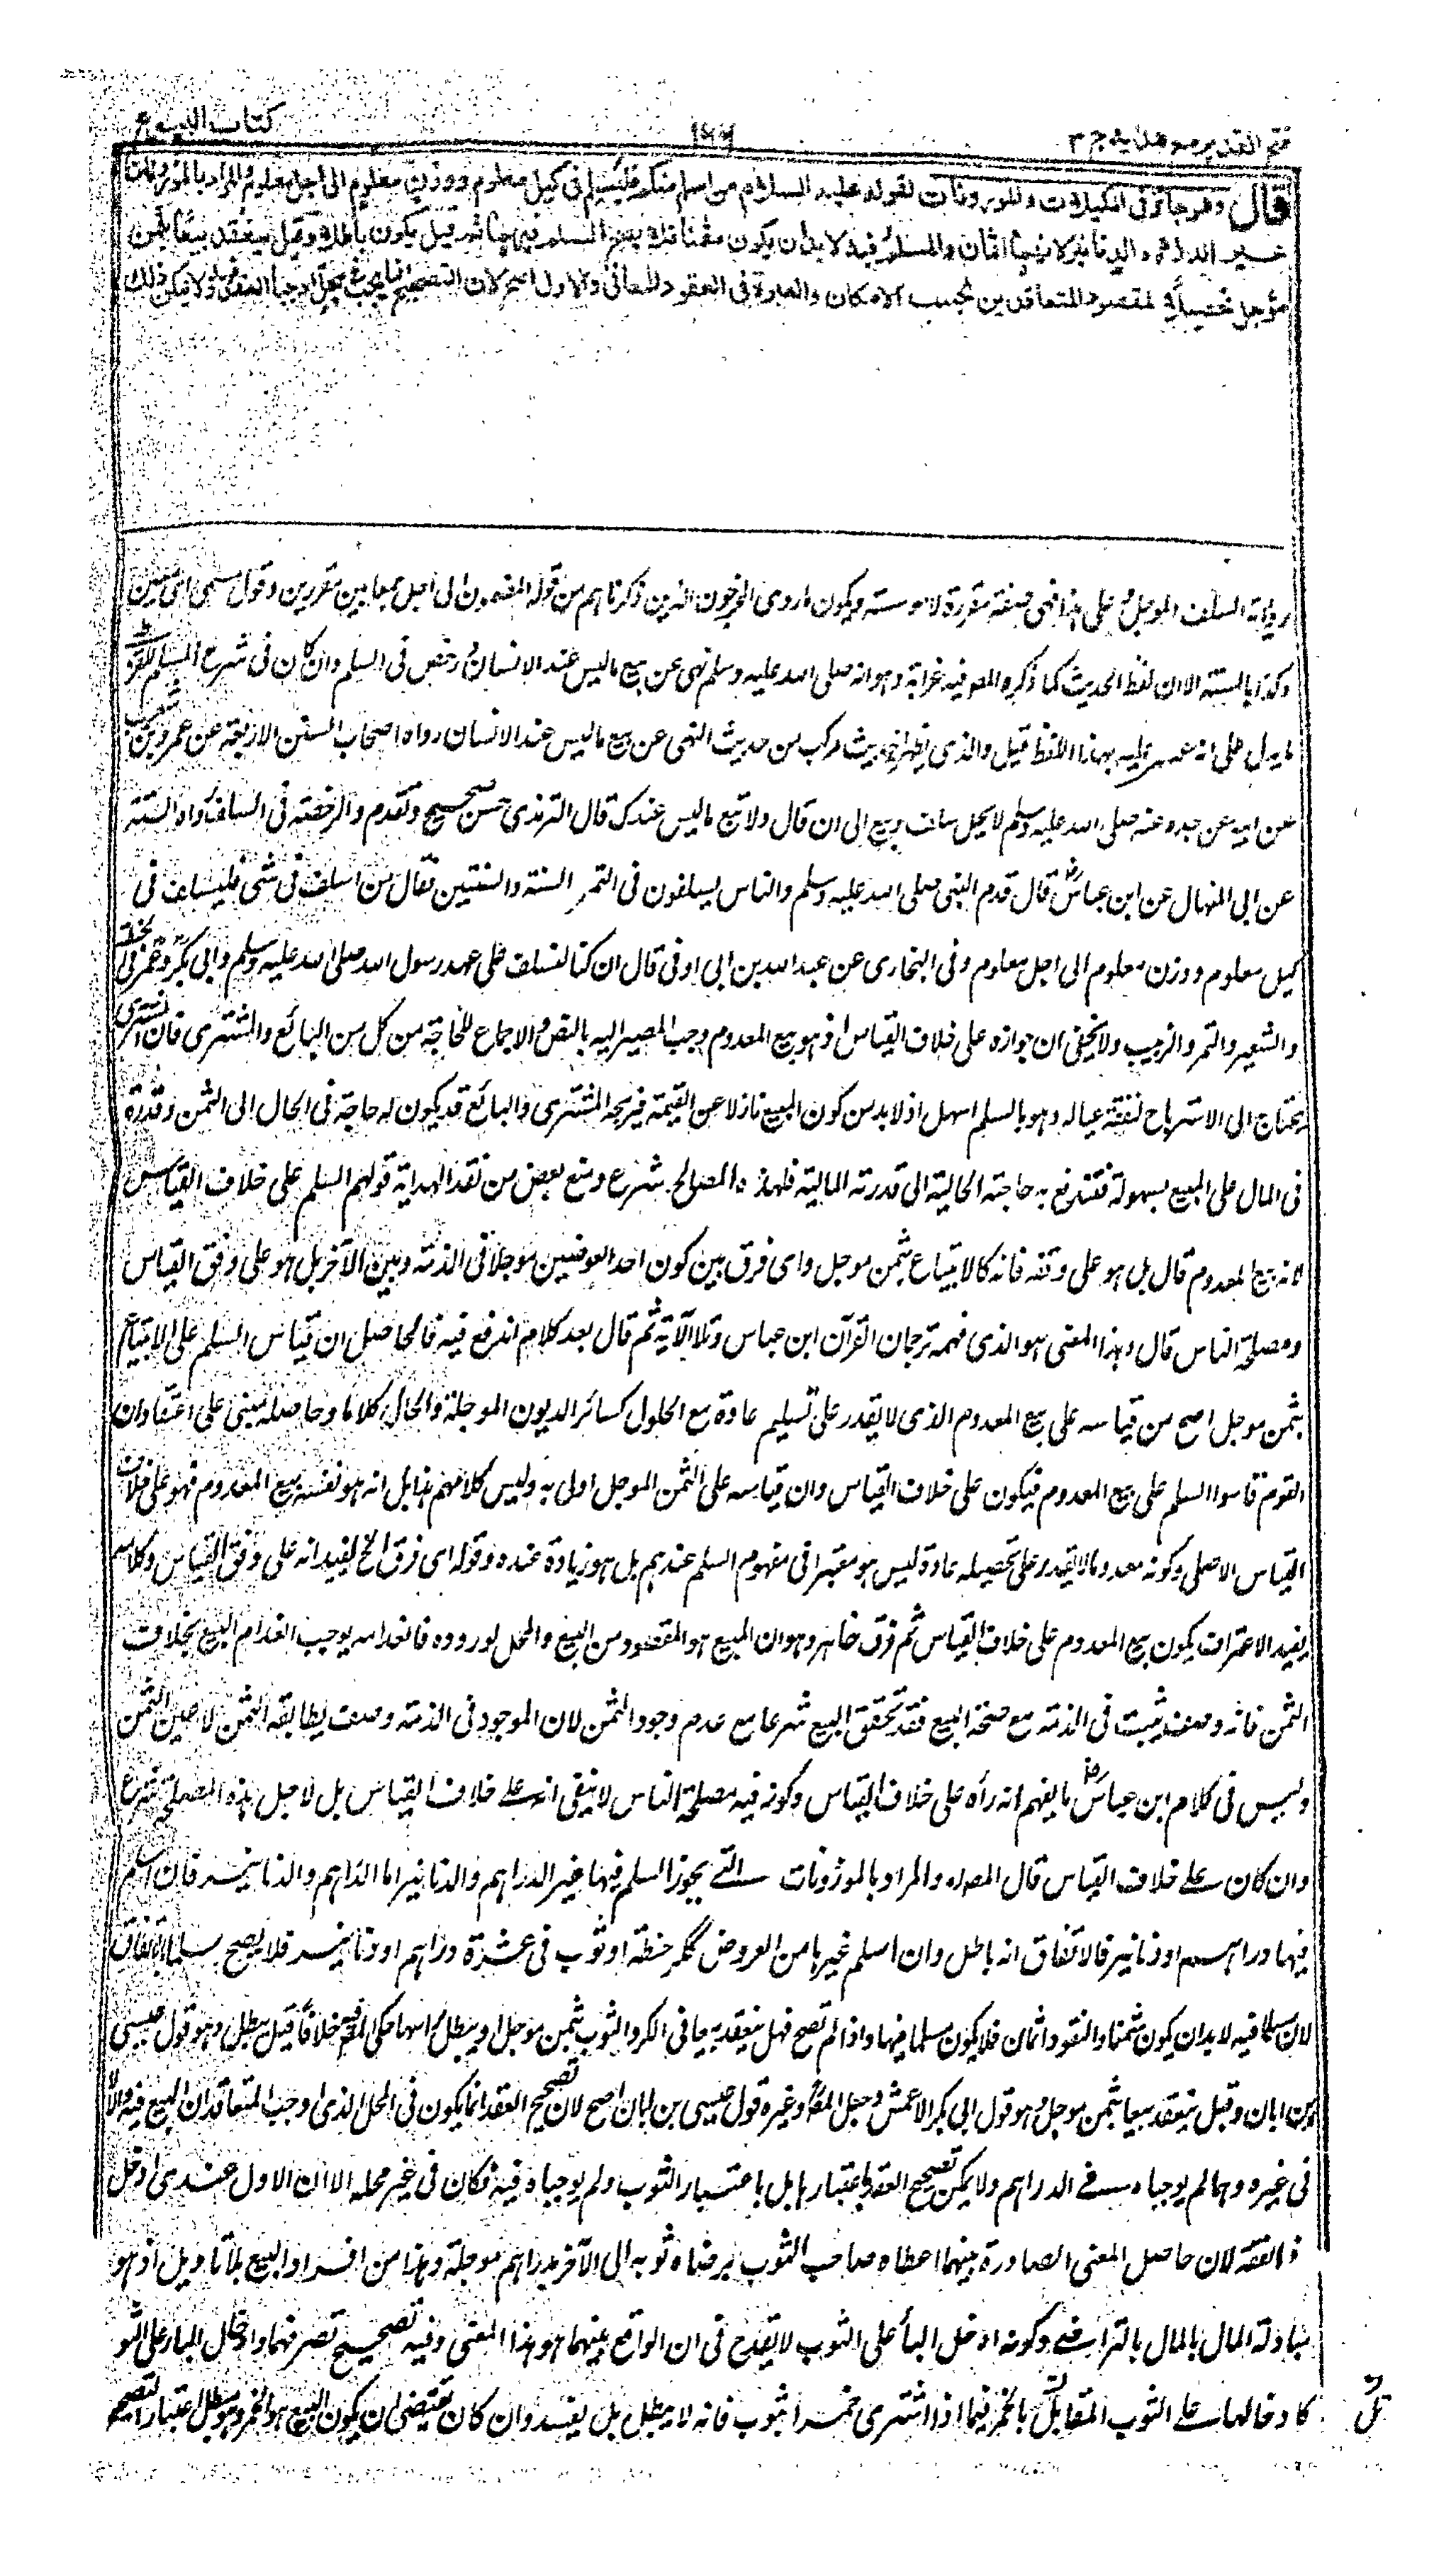 فتح القدير مع هداية ج ٣
١٩٩
كتاب البيوع
قال وهو جائز في المكيلات والموزونات لقوله عليه السلام من اسلم منكم فليسلم في كيل معلوم ووزن معلوم الى اجل معلوم والمراد بالموزونات
غير الدراهم والدنانير لانهما اثمان والمسلم فيه لا بد ان يكون مثمنا فلا يصح السلم فيهما ثم قيل يكون باطلا وقيل ينعقد بيعا بثمن
مؤجل تحصيلا لمقصود المتعاقدين بحسب الامكان والعبرة في العقود للمعاني والاول اصح لان التصحيح انما يجب في محل اوجبا العقد فيه ولا يمكن ذلك
رواية السلف المؤجل على هذا فهي صفة مقررة لا مؤسسة ويكون ما روى المخرجون الذين ذكرناهم من قوله المضمون الى اجل جمعا بين مقررين وقول مسمى اى معين
وكذا بالسنة الا ان لفظ الحديث كما ذكره المصنف فيه غرابة وهو انه صلى الله عليه وسلم نهى عن بيع ما ليس عند الانسان ورخص في السلم وان كان في شرح المسلم للقرطبى
ما يدل على انه عثر عليه بهذا اللفظ قيل والذي يظهر انه حديث مركب من حديث النهى عن بيع ما ليس عند الانسان رواه اصحاب السنن الاربعة عن عمرو بن شعيب
عن ابيه عن جده عنه صلى الله عليه وسلم لا يحل سلف وبيع الى ان قال ولا تبع ما ليس عندك قال الترمذى حسن صحيح وتقدم والرخصة في السلف رواه الستة
عن ابى المنهال عن ابن عباس رض قال قدم النبى صلى الله عليه وسلم والناس يسلفون في التمر السنة والسنتين فقال من اسلف في شئ فليسلف في
كيل معلوم ووزن معلوم الى اجل معلوم وفي البخارى عن عبد الله بن ابى اوفى قال ان كنا لنسلف على عهد رسول الله صلى الله عليه وسلم وابى بكر وعمر في الحنطة
والشعير والتمر والزبيب ولا يخفى ان جوازه على خلاف القياس اذ هو بيع المعدوم وجب المصير اليه بالنص والاجماع للحاجة من كل من البائع والمشترى فان المشترى
يحتاج الى الاسترباح لنفقة عياله وهو بالسلم اسهل اذ لا بد من كون المبيع نازلا عن القيمة فيربحه المشترى والبائع قد يكون له حاجة في الحال الى الثمن وقدرة
في المال على المبيع بسهولة فتندفع به حاجته الحالية الى قدرته المالية فلهذه المصالح شرع ومنع بعض من نقد الهداية قولهم السلم على خلاف القياس
لانه بيع المعدوم قال بل هو على وفقه فانه كالابتياع بثمن مؤجل واى فرق بين كون احد العوضين مؤجلا في الذمة وبين الآخر بل هو على وفق القياس
ومصلحة الناس قال وهذا المعنى هو الذي فهمه ترجمان القرآن ابن عباس وتلا الآية ثم قال بعد كلام اندفع فيه فالحاصل ان قياس السلم على الابتياع
بثمن مؤجل اصح من قياسه على بيع المعدوم الذي لا يقدر على تسليمه عادة مع الحلول كسائر الديون المؤجلة والحال كلاما وحاصله مبنى على اعتقاد ان
القوم قاسوا السلم على بيع المعدوم فيكون على خلاف القياس وان قياسه على الثمن المؤجل اولى به وليس كلامهم هذا بل انه هو نفسه بيع المعدوم فهو على خلاف
القياس الاصلى وكونه معدوما لا يقدر على تحصيله عادة ليس هو معتبرا في مفهوم السلم عندهم بل هو زيادة عنده وقوله اى فرق الخ يفيد انه على وفق القياس وكلامه
يفيد الاعتراف بكون بيع المعدوم على خلاف القياس ثم فرق ظاهر وهو ان المبيع هو المقصود من البيع والمحل لوروده فانعدامه يوجب انعدام البيع بخلاف
الثمن فانه وصف يثبت في الذمة مع صحة البيع فقد تحقق البيع شرعا مع عدم وجود الثمن لان الموجود في الذمة وصف يطابقه الثمن لا عين الثمن
وليس في كلام ابن عباس رض ما يفهم انه رآه على خلاف القياس وكونه فيه مصلحة الناس لا ينفى انه على خلاف القياس بل لاجل هذه المصلحة شرع
وان كان على خلاف القياس قال المص ره والمراد بالموزونات التي يجوز السلم فيها غير الدراهم والدنانير اما الدراهم والدنانير فان اسلم
فيها دراهم او دنانير فالاتفاق انه باطل وان اسلم غيرها من العروض ككر حنطة او ثوب في عشرة دراهم او دنانير فلا يصح سلما بالاتفاق
لان المسلم فيه لا بد ان يكون مثمنا والنقود اثمان فلا يكون مسلما فيها واذا لم تصح فهل ينعقد بيعا في الكر والثوب بثمن مؤجل او يبطل اسها حكى المص فيه خلافا قيل يبطل وهو قول عيسى
بن ابان وقيل ينعقد بيعا بثمن مؤجل وهو قول ابى بكر الاعمش وجعل المص وغيره قول عيسى بن ابان اصح لان تصحيح العقد انما يكون في المحل الذي اوجب المتعاقدان البيع فيه ولا
في غيره وهما لم يوجباه في الدراهم ولا يمكن تصحيح العقد باعتبارها بل باعتبار الثوب ولم يوجباه فيه فكان في غير محله الا ان الاول عندى ادخل
في الفقه لان حاصل المعنى الصادرة بينهما اعطاه صاحب الثوب برضاه ثوبه الى الآخر بدراهم مؤجلة وهذا من افراد البيع بلا تاويل اذ هو
مبادلة المال بالمال بالتراضى وكونه ادخل الباء على الثوب لا يقدح في ان الواقع بينهما هو هذا المعنى وفيه تصحيح تصرفهما وادخال الباء على الثوب
كادخالها على الثوب المقابل بالخمر فيما اذا اشترى خمرا بثوب فانه لا يبطل بل يفسد وان كان يقتضى ان يكون المبيع هو الخمر وهو مبطل اعتبارا لتصحيح